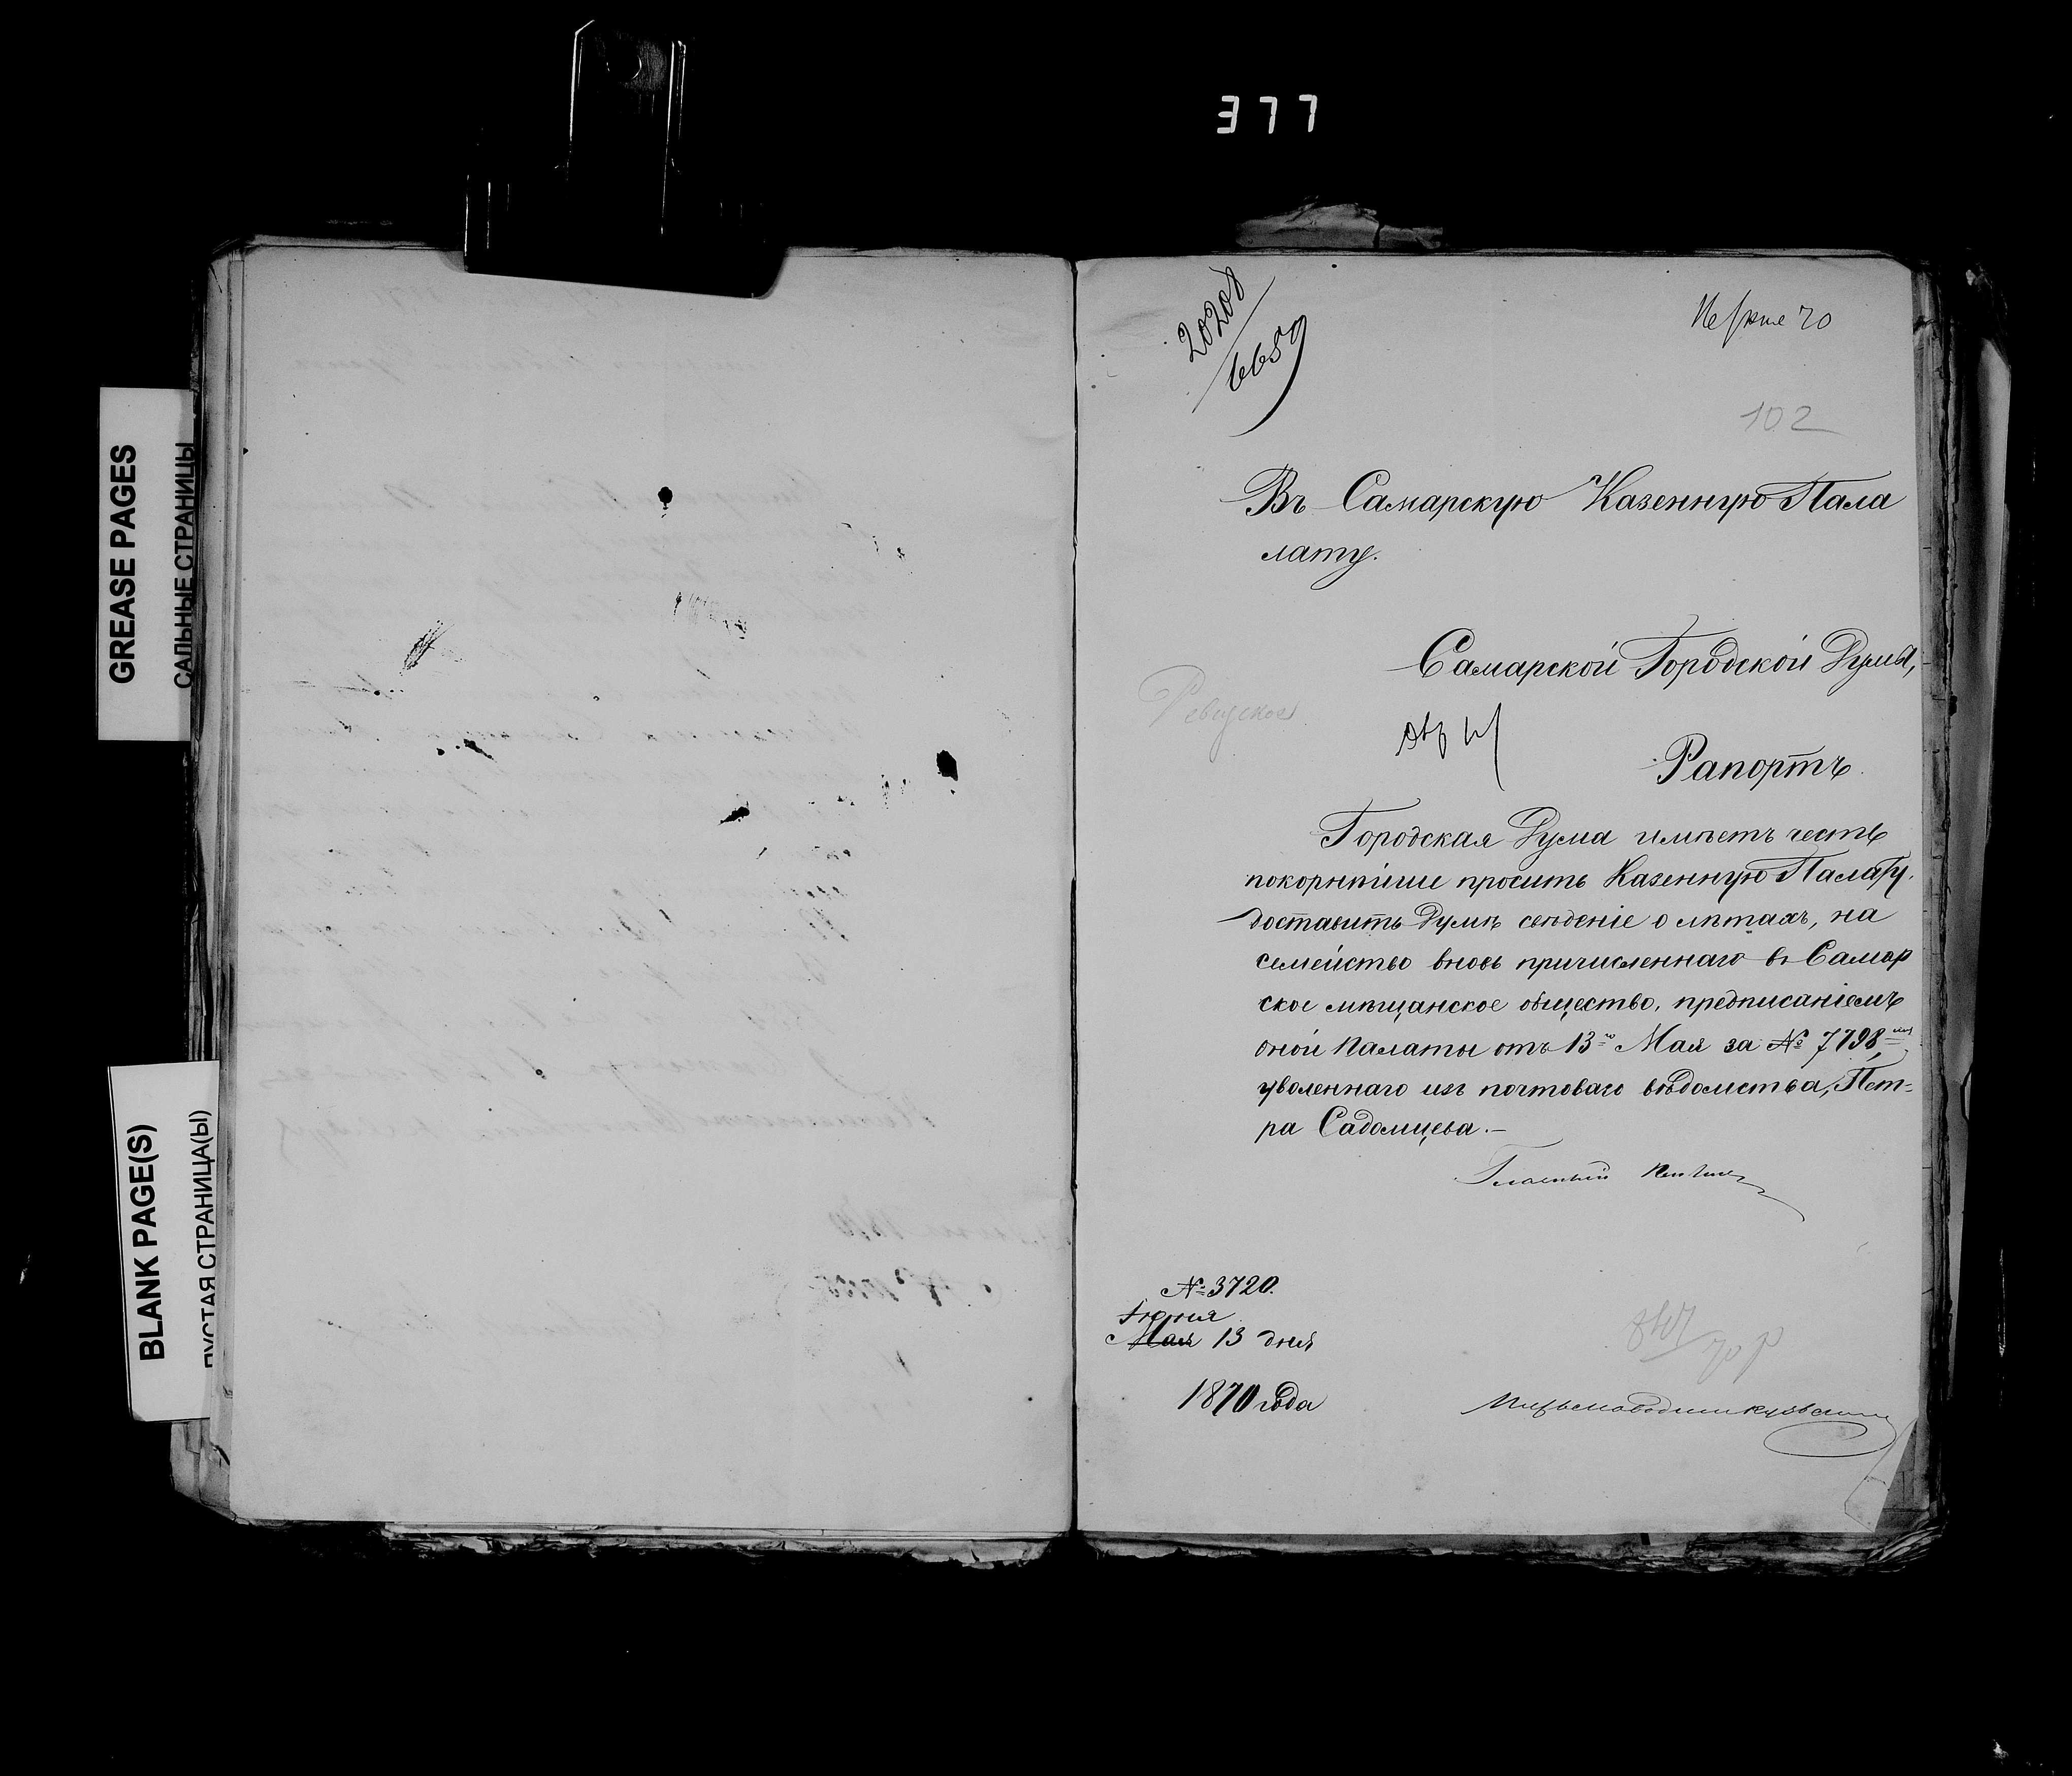 377
GREASE PAGES
САЛЬНЫЕ СТРАНИЦЫ
BLANK PAGE(S)
ПУСТАЯ СТРАНИЦА(Ы)
20208
6659
70
102
Въ Самарскую Казенную Пала
лату.
Самарской Городской Думы,
Ревизское
Рапортъ.
Городская Дума имѣетъ честь
покорнѣйше просить Казенную Палату
доставить Думѣ свѣденіе о лѣтахъ, на
семейство вновь причисленнаго въ Самар
ское мѣщанское общество, предписаніемъ
оной Палаты отъ 13го Мая за № 7798мъ,
уволеннаго изъ почтоваго вѣдомства, Пет-
ра Садомцева.-
Гласный
№ 3720.
Іюня
Мая 13 дня
1870 года
Письмоводитель